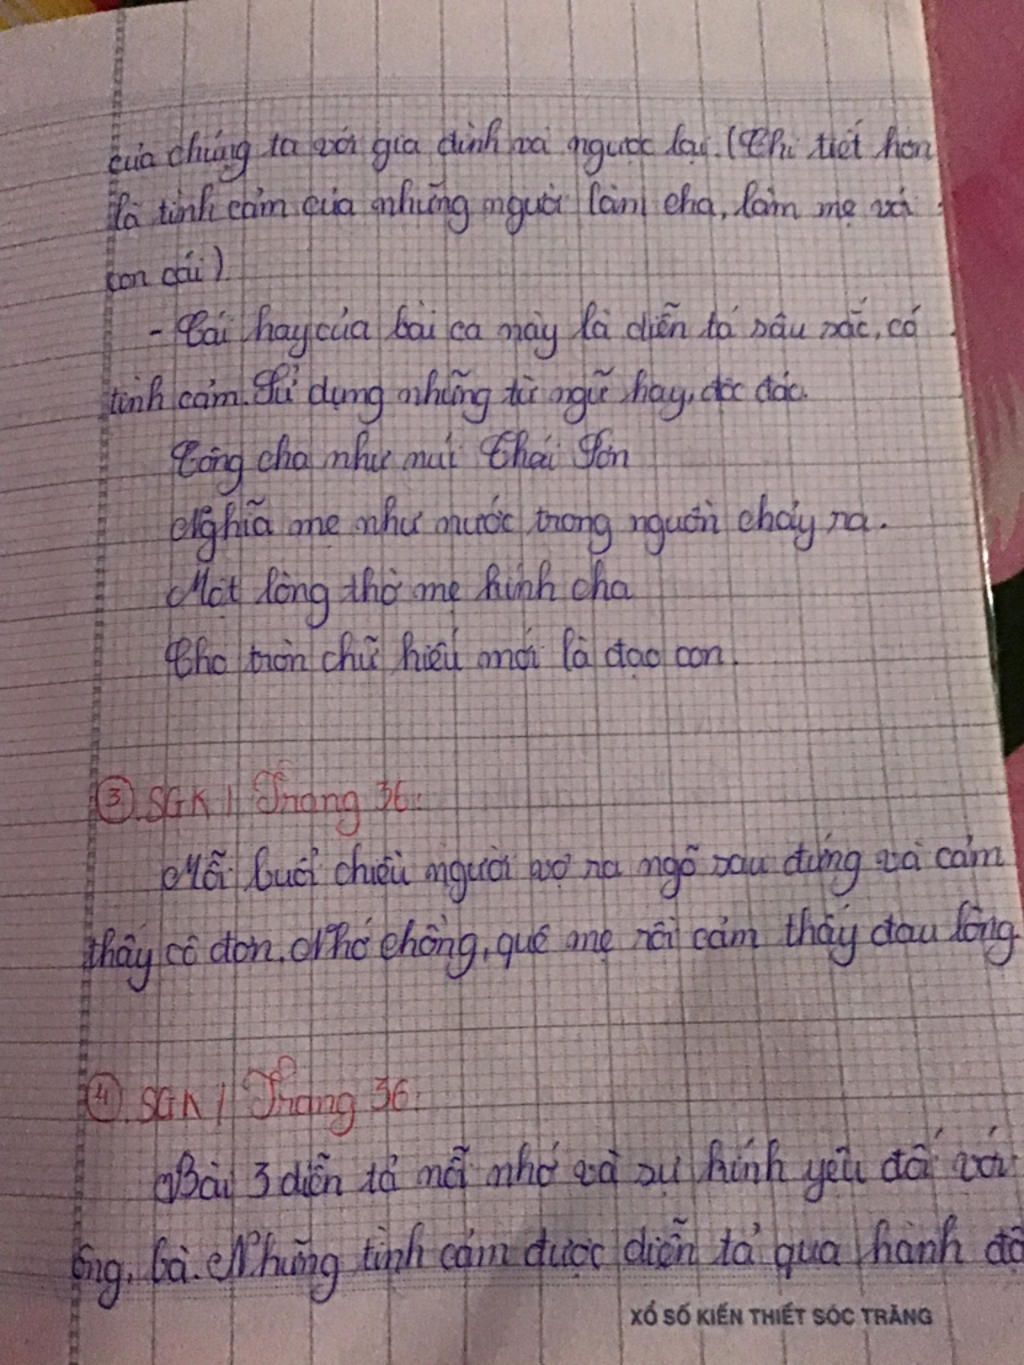 của chúng ta với gia đình và ngược lại. (Chi tiết hơn
là tình cảm của những người làm cha, làm mẹ với
con cái)
- Cái hay của bài ca này là diễn tả sâu sắc, có
tình cảm. Sử dụng những từ ngữ hay, độc đáo.
Công cha như núi Thái Sơn
Nghĩa mẹ như nước trong nguồn chảy ra.
Một lòng thờ mẹ kính cha
Cho tròn chữ hiếu mới là đạo con.
③. SGK / Trang 36:
Mỗi buổi chiều người vợ ra ngõ sau đứng và cảm
thấy cô đơn. Nhớ chồng, quê mẹ rồi cảm thấy đau lòng
④. SGK / Trang 36:
Bài 3 diễn tả nỗi nhớ và sự kính yêu đối với
ông, bà. Những tình cảm được diễn tả qua hành
XỔ SỐ KIẾN THIẾT SÓC TRĂNG